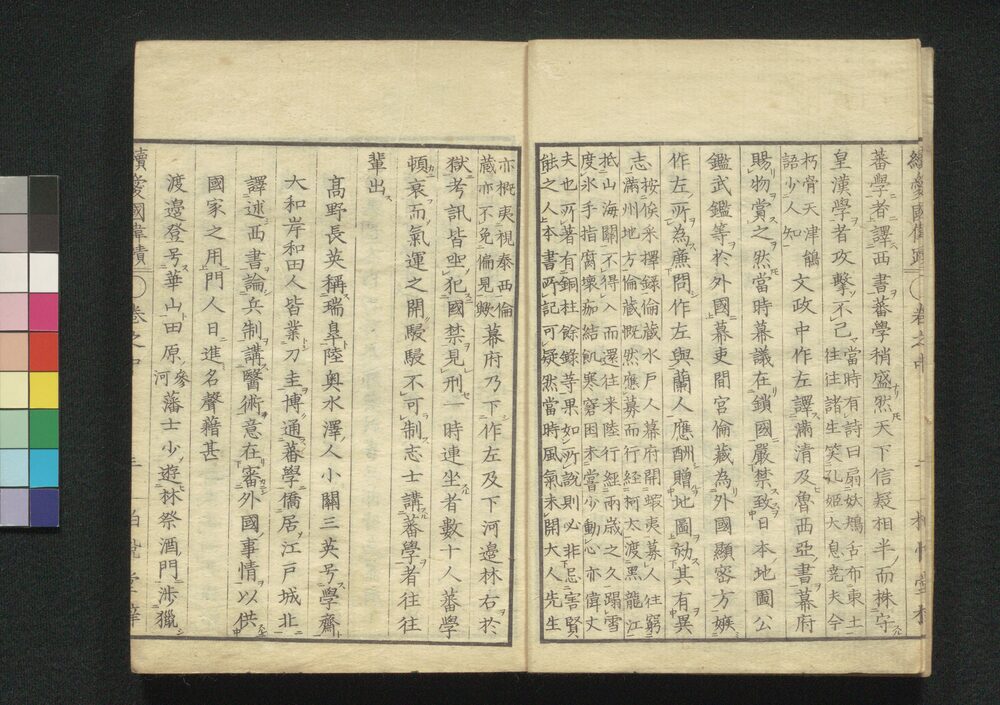 蕃學者譯西書蕃學稍盛然天下信疑相半而株守
皇漢學者攻擊不已當時有詩曰扇妖鴂舌布東土往往諸生笑孔姬大息堯夫今
朽骨天津鵑語少人知文政中作左譯滿清及魯西亞書幕府
賜物賞之然當時幕議在鎖國嚴禁致日本地圖公
鑑武鑑等於外國幕吏間宮倫藏為外國顯密方嫉
作左所為廉問作左與蘭人應酬贈地圖劾其有異
志按俟采擇録倫藏水戶人幕府開蝦夷募人往窮
滿州地方倫藏慨然應募而行經柯太渡黑龍江
抵山海關不得入而還往来陸行經兩歳之久蹋雪
度氷手指腐壞痂結飢寒窘困未嘗少動心亦偉丈
夫也所著有銅柱餘錄等果如所說則必非忌害賢
能之人本書所記可疑然當時風氣未開大人先生
亦概夷視泰西倫
藏亦不免偏見歟幕府乃下作左及下河邉林右於
獄考訊皆坐犯國禁見刑一時連坐者數十人蕃學
頓衰而氣運之開駸駸不可制志士講蕃學者往往
輩出
高野長英稱瑞皐陸奥水澤人小關三英号學齋
大和岸和田人皆業刀圭博通蕃學僑居江戸城北
譯述西書論兵制講醫術意在審外國事情以供
國家之用門人日進名聲藉甚
渡邉登号華山田原參河藩士少遊林祭酒門涉獵
續愛國偉績 卷之中